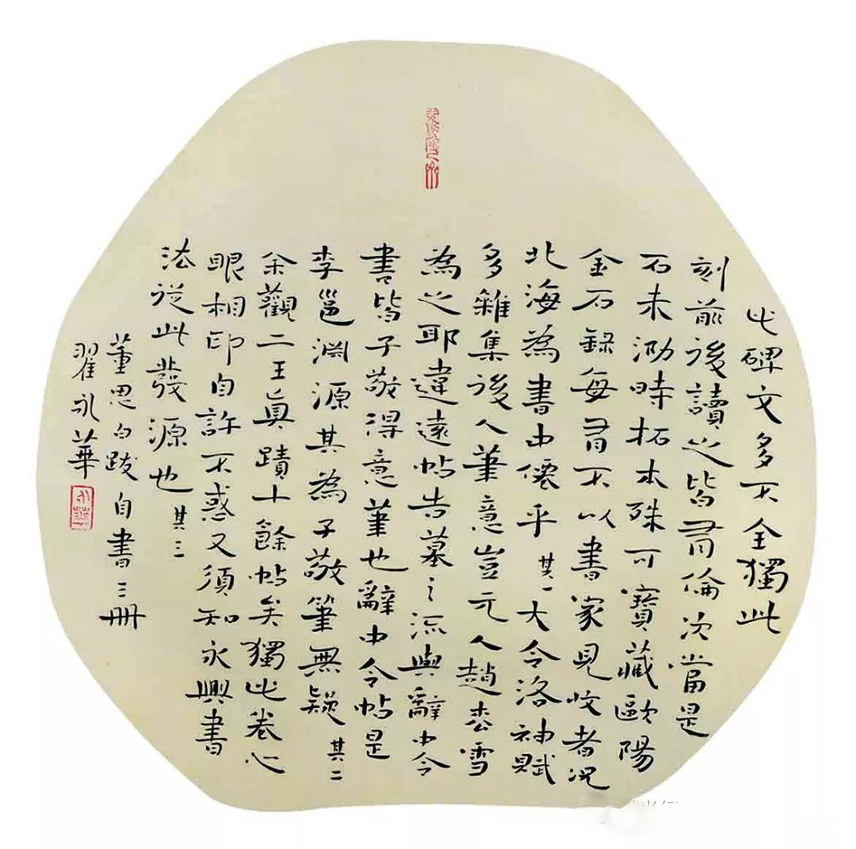 此碑文多不全獨此
刻前後讀之皆有倫次當是
石未泐時拓本殊可寶藏歐陽
金石錄每有不以書家見收者况
北海為書中僊乎 其一 大令洛神賦
多雜集後人筆意豈元人趙松雪
為之耶違遠帖告墓之流與辭中令
書皆子敬得意筆也辭中令帖是
李邕淵源其為子敬筆無疑 其二
余觀二王真蹟十餘帖矣獨此卷心
眼相印自許不惑又須知永興書
法從此發源也 其三
董思白跋自書三冊
翟永華